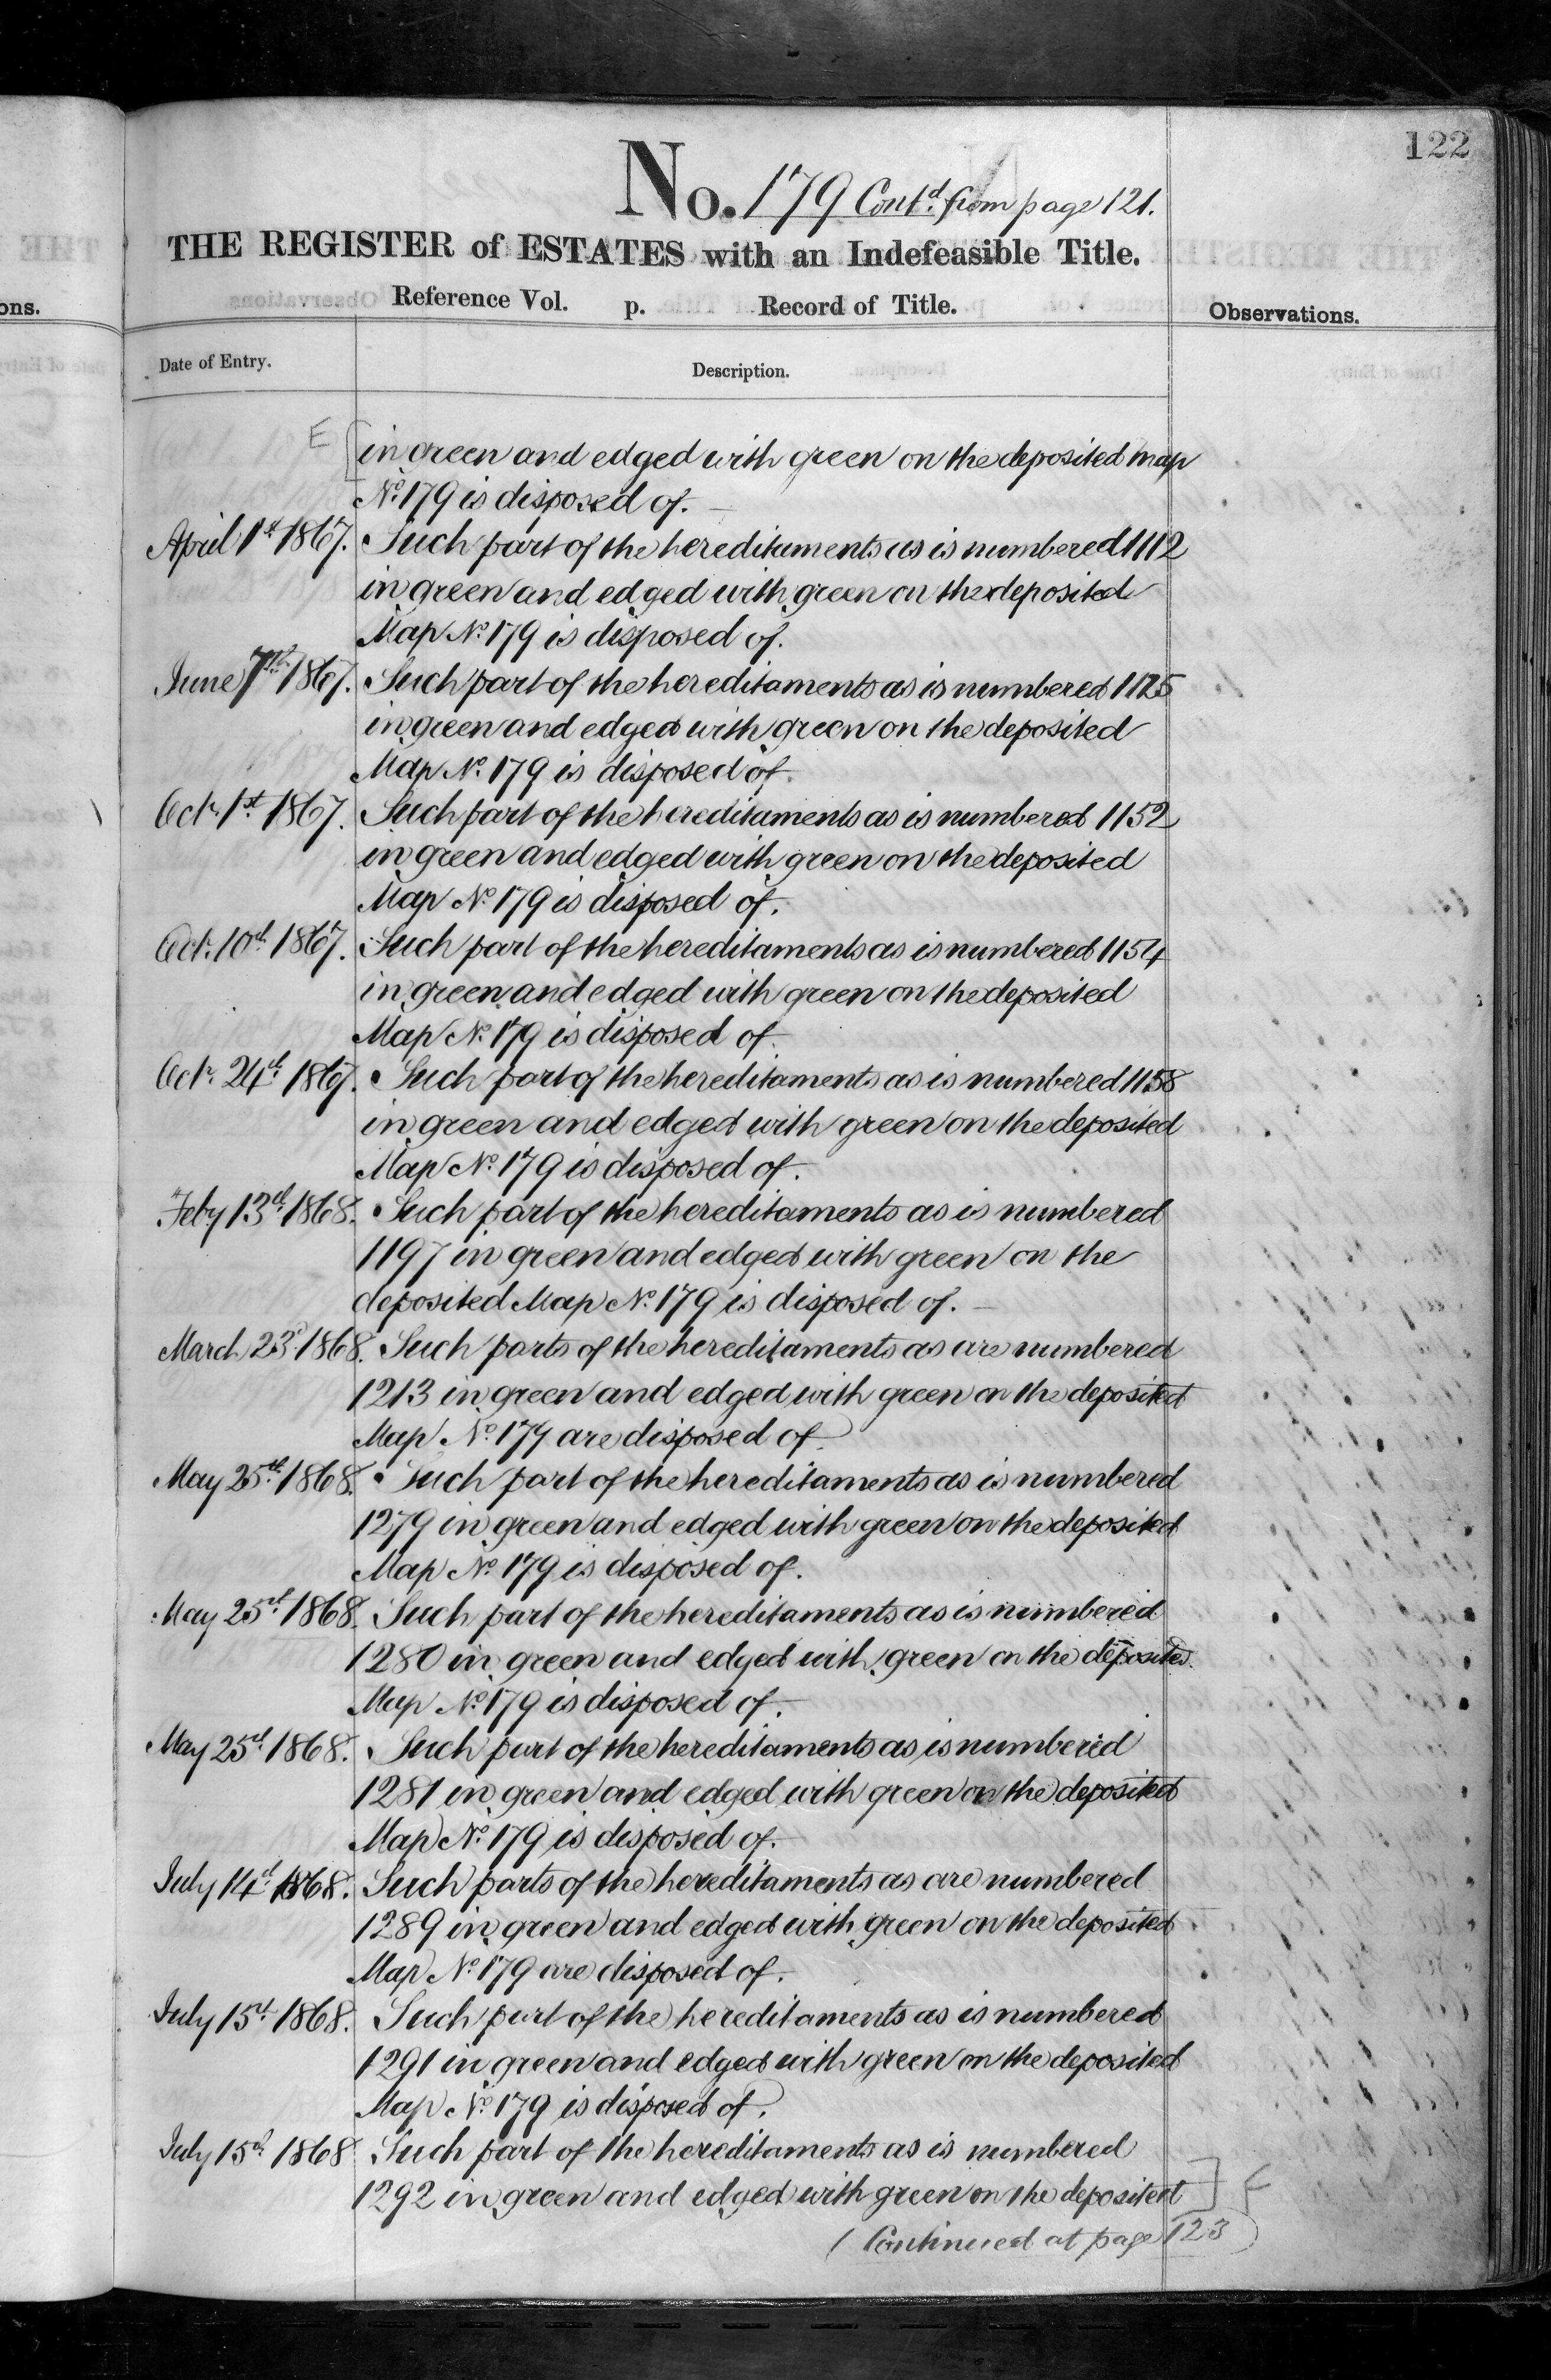 122
No. 179 Contd. from page 121.
THE REGISTER of ESTATES with an Indefeasible Title.
Reference Vol. p. Record of Title.
Observations.
ons.
Date of Entry.
Description.
E [in green and edged with green on the deposited map
No. 179 is disposed of. —
April 1st 1867. Such part of the hereditaments as is numbered 1112
in green and edged with green on the deposited
Map No. 179 is disposed of.
June 7th 1867. Such part of the hereditaments as is numbered 1125
in green and edged with green on the deposited
Map No. 179 is disposed of.
Octr. 1st 1867. Such part of the hereditaments as is numbered 1152
in green and edged with green on the deposited
Map No. 179 is disposed of.
Octr. 10th 1867. Such part of the hereditaments as is numbered 1154
in green and edged with green on the deposited
Map No. 179 is disposed of.
Octr. 24th 1867. Such part of the hereditaments as is numbered 1158
in green and edged with green on the deposited
Map No. 179 is disposed of.
Feby 13th 1868. Such part of the hereditaments as is numbered
1197 in green and edged with green on the
deposited Map No. 179 is disposed of. —
March 23d 1868. Such parts of the hereditaments as are numbered
1213 in green and edged with green on the deposited
Map No. 179 are disposed of.
May 25th 1868. Such part of the hereditaments as is numbered
1279 in green and edged with green on the deposited
Map No. 179 is disposed of.
May 25th 1868. Such part of the hereditaments as is numbered
1280 in green and edged with green on the deposited
Map No. 179 is disposed of.
May 25th 1868. Such part of the hereditaments as is numbered
1281 in green and edged with green on the deposited
Map No. 179 is disposed of.
July 14th 1868. Such parts of the hereditaments as are numbered
1289 in green and edged with green on the deposited
Map No. 179 are disposed of.
July 15th 1868. Such part of the hereditaments as is numbered
1291 in green and edged with green on the deposited
Map No. 179 is disposed of.
July 15th 1868 Such part of the hereditaments as is numbered
1292 in green and edged with green on the deposited ] F
(Continued at page 123)